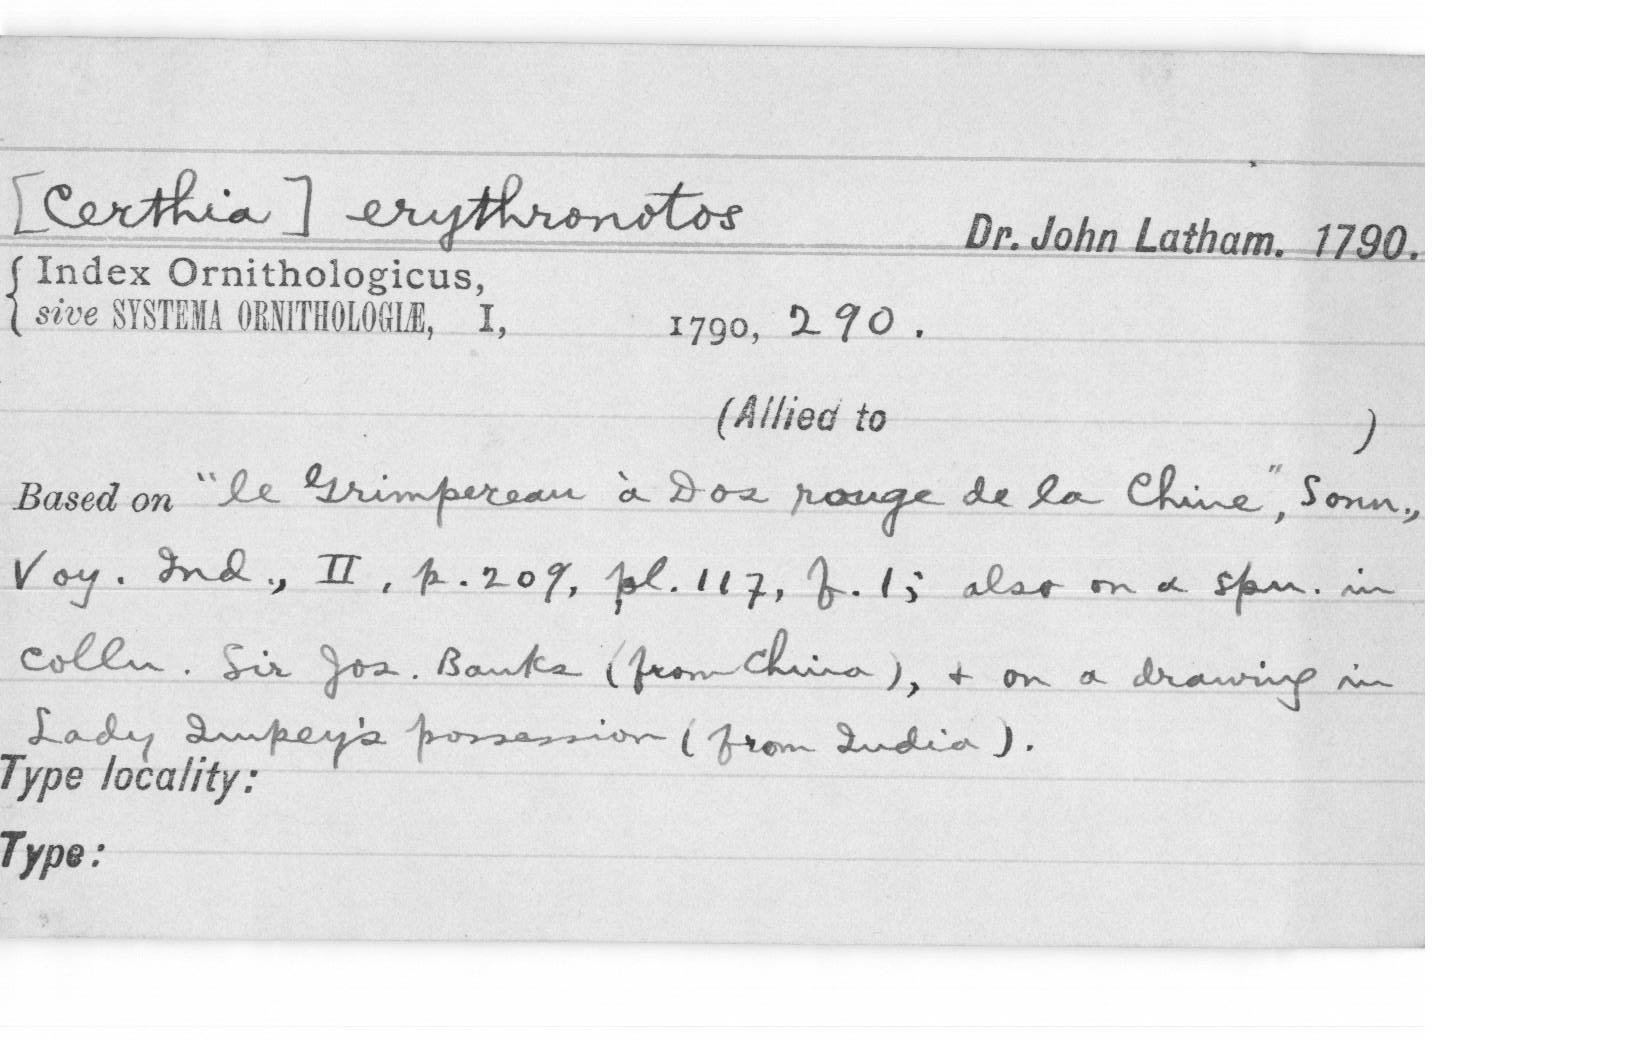 [Certhia] erythronotos Dr. John Latham. 1790.
Index Ornithologicus,
sive SYSTEMA ORNITHOLOGIÆ, I, 1790, 290.
(Allied to )
Based on "le Grimpereau à Dos rouge de la Chine", Sonn.,
Voy. Ind., II, p. 209, pl. 117, f. 1; also on a spm. in
colln. Sir Jos. Banks (from China), + on a drawing in
Lady Impey's possession (from India).
Type locality:
Type: